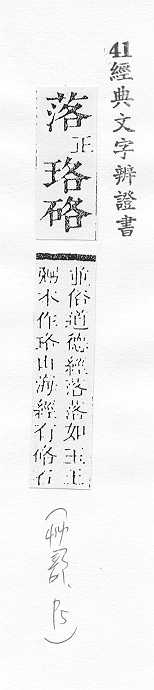 41經典文字辨證書
落正珞硌
並俗道德經落落如玉王
弼本作珞山海經有硌石
(艸部, P5)